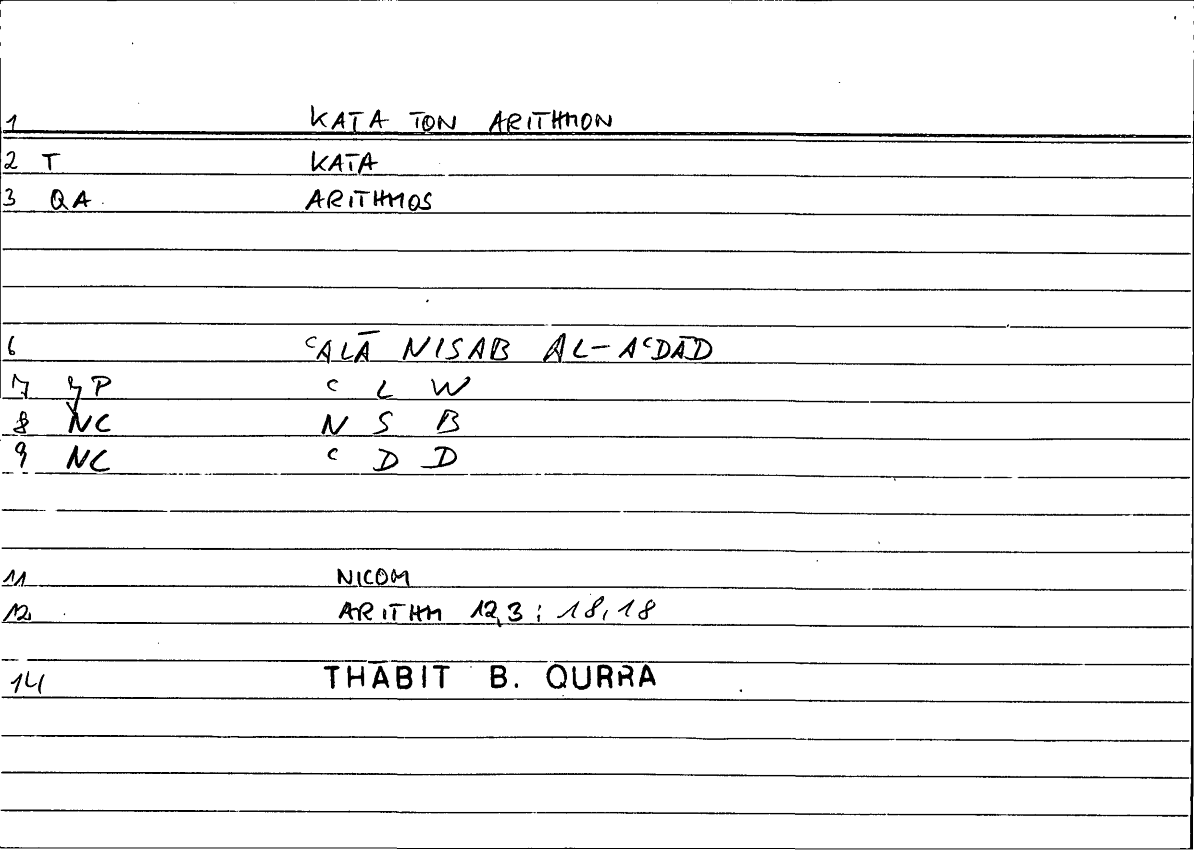 1 KATA TON ARITHMON
2 T KATA
3 QA ARITHMOS
6 ʿALĀ NISAB AL-AʿDĀD
7 P ʿ L W
8 NC N S B
9 NC ʿ D D
11 NICOM
12 ARITHM 12,3 ; 18,18
14 THĀBIT B. QURRA